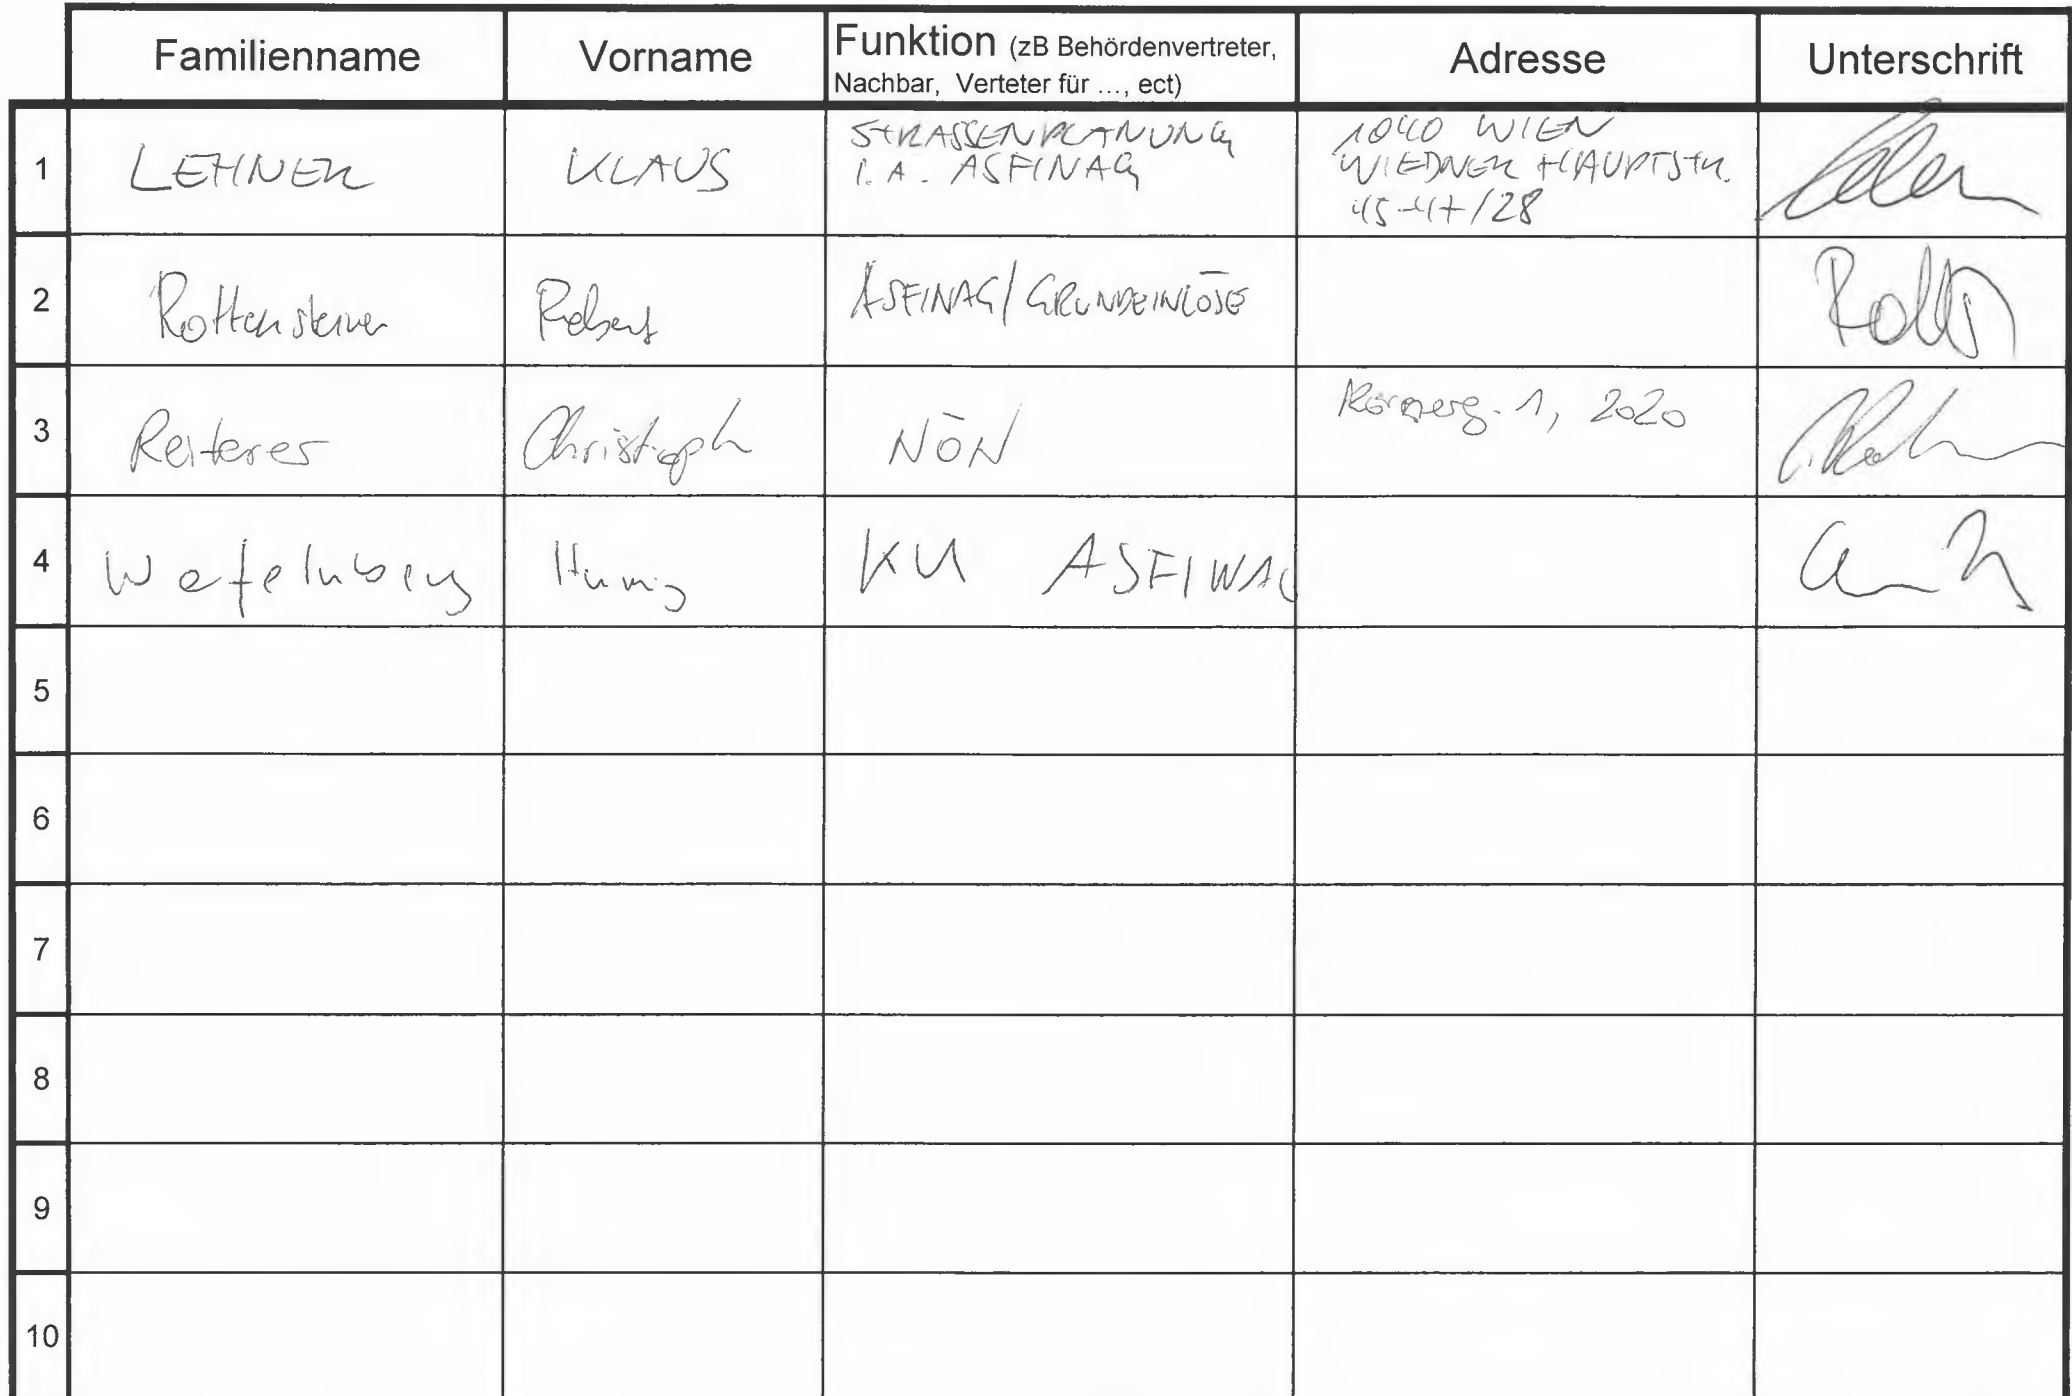 Familienname Vorname Funktion (zB Behördenvertreter, Nachbar, Verteter für ..., ect) Adresse Unterschrift
1 LEHNER KLAUS STRASSENPLANUNG 1040 WIEN
I.A. ASFINAG WIEDNER HAUPTSTR.
45-47/28
2 Rottensteiner Robert ASFINAG/GRUNDEINLÖSE
3 Reiterer Christoph NÖN 1, 2020
4 KU ASFINAG
5
6
7
8
9
10